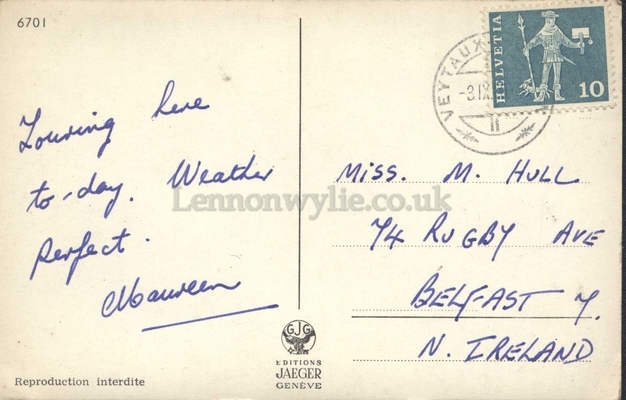 6701
Touring here
to-day. Weather
perfect.
Maureen
HELVETIA
10
VEYTAUX
-3.IX
11
MISS. M. HULL
74 RUGBY AVE
BELFAST 7.
N. IRELAND
Lennonwylie.co.uk
GJG
EDITIONS
JAEGER
GENÈVE
Reproduction interdite